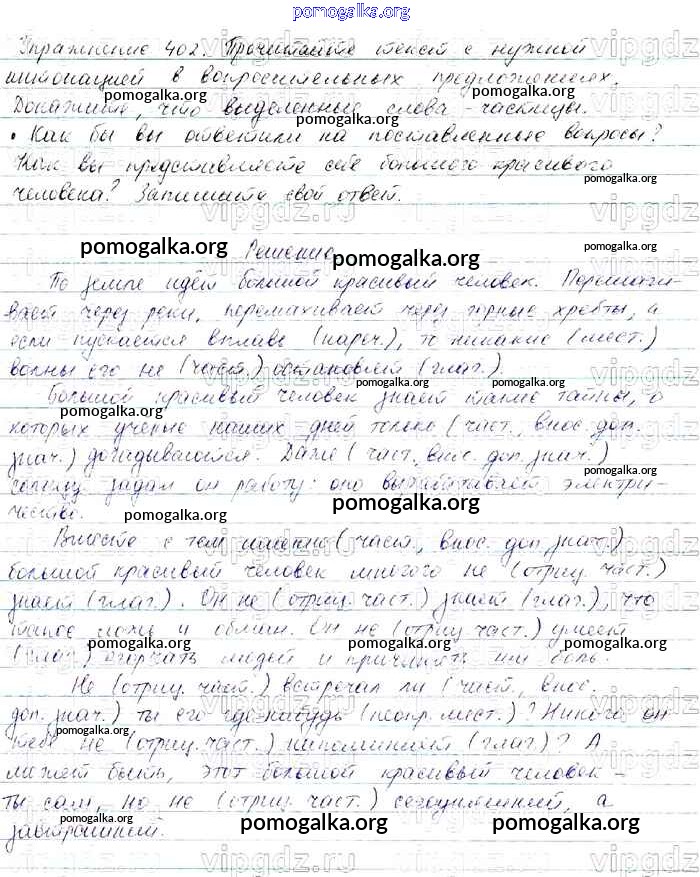 pomogalka.org
Упражнение 402. Прочитайте текст с нужной
интонацией в вопросительных предложениях.
Докажите, что выделенные слова - частицы.
• Как бы вы ответили на поставленные вопросы?
Как вы представляете себе большого красивого
человека? Запишите свой ответ.
Решение
По земле идёт большой красивый человек. Перешаги-
вает через реки, перемахивает через горные хребты, а
если пускается вплавь (нареч.), то никакие (мест.)
волны его не (част.) остановят (глаг.).
Большой красивый человек знает такие тайны, о
которых учёные наших дней только (част., внос. доп.
знач.) догадываются. Даже (част., внос. доп. знач.)
солнцу задал он работу: оно вырабатывает электри-
чество.
Вместе с тем именно (част., внос. доп. знач.)
большой красивый человек многого не (отриц. част.)
знает (глаг.). Он не (отриц. част.) знает (глаг.), что
такое ложь и обман. Он не (отриц. част.) умеет
(глаг.) огорчать людей и причинять им боль.
Не (отриц. част.) встречал ли (част., внос.
доп. знач.) ты его где-нибудь (неопр. мест.)? Никого он
тебе не (отриц. част.) напоминает (глаг.)? А
может быть, этот большой красивый человек -
ты сам, но не (отриц. част.) сегодняшний, а
завтрашний.